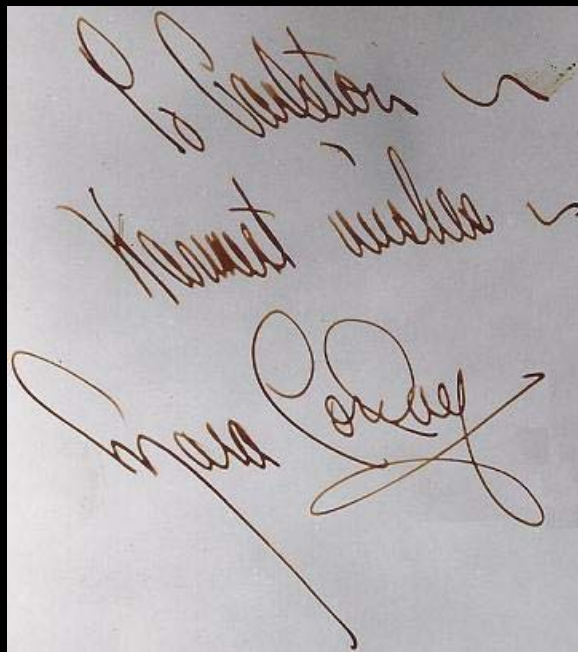 To Carlston ~
Warmest wishes ~
Mara Corday